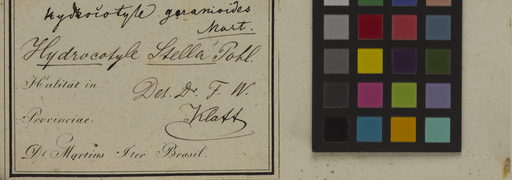 Hydrocotyle geranioides
Mart.
Hydrocotyle Stella Pohl.
Habitat in
Det. Dr. F. W.
Klatt
Provinciae
Dr. Martius Iter Brasil.